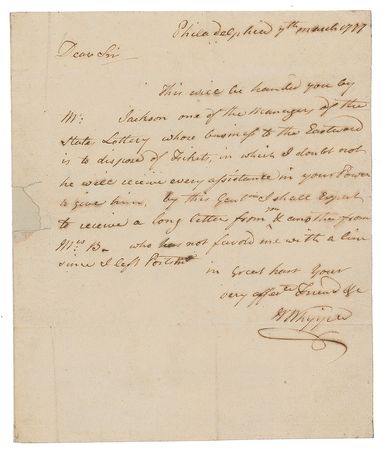 Philadelphia 7th March 1777
Dear Sir
This will be handed you by
Mr: Jackson one of the Managers of the
State Lottery whose business to the Eastward
is to dispose of Tickets, in which I doubt not
he will receive every assistance in your Power
to give him, by this Gentn I shall Expect
to receive a long letter from you & another from
Mrs B. who has not favord me with a line
since I left Portsmo
in Great hast Your
very affecte Friend &c
Wm Whipple